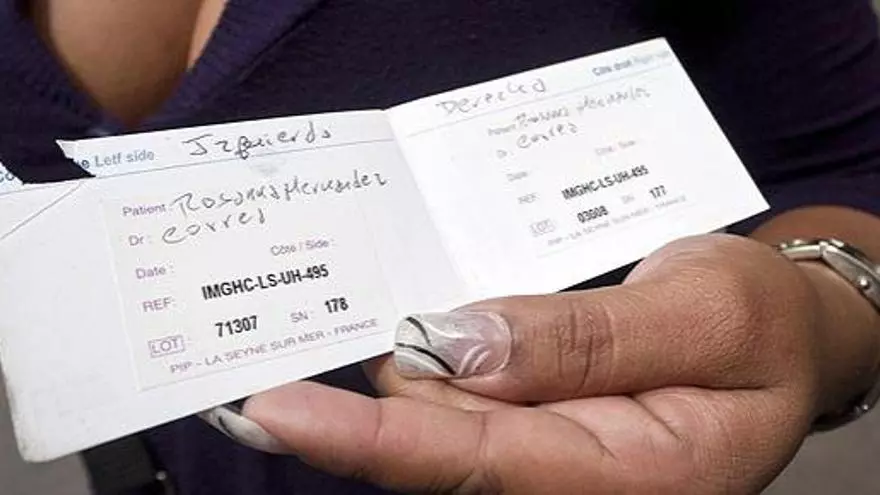 Letf side Izquierdo
Patient: Rosanna Hernandez
Dr: Correa
Côté / Side :
Date :
REF: IMGHC-LS-UH-495
LOT: 71307 SN : 178
PIP - LA SEYNE SUR MER - FRANCE
Côté droit Right
Derecho
Patient: Rosanna Hernandez
Correa
Côté / Side :
Date :
REF: IMGHC-LS-UH-495
LOT: 03608 SN : 177
PIP - LA SEYNE SUR MER - FRANCE